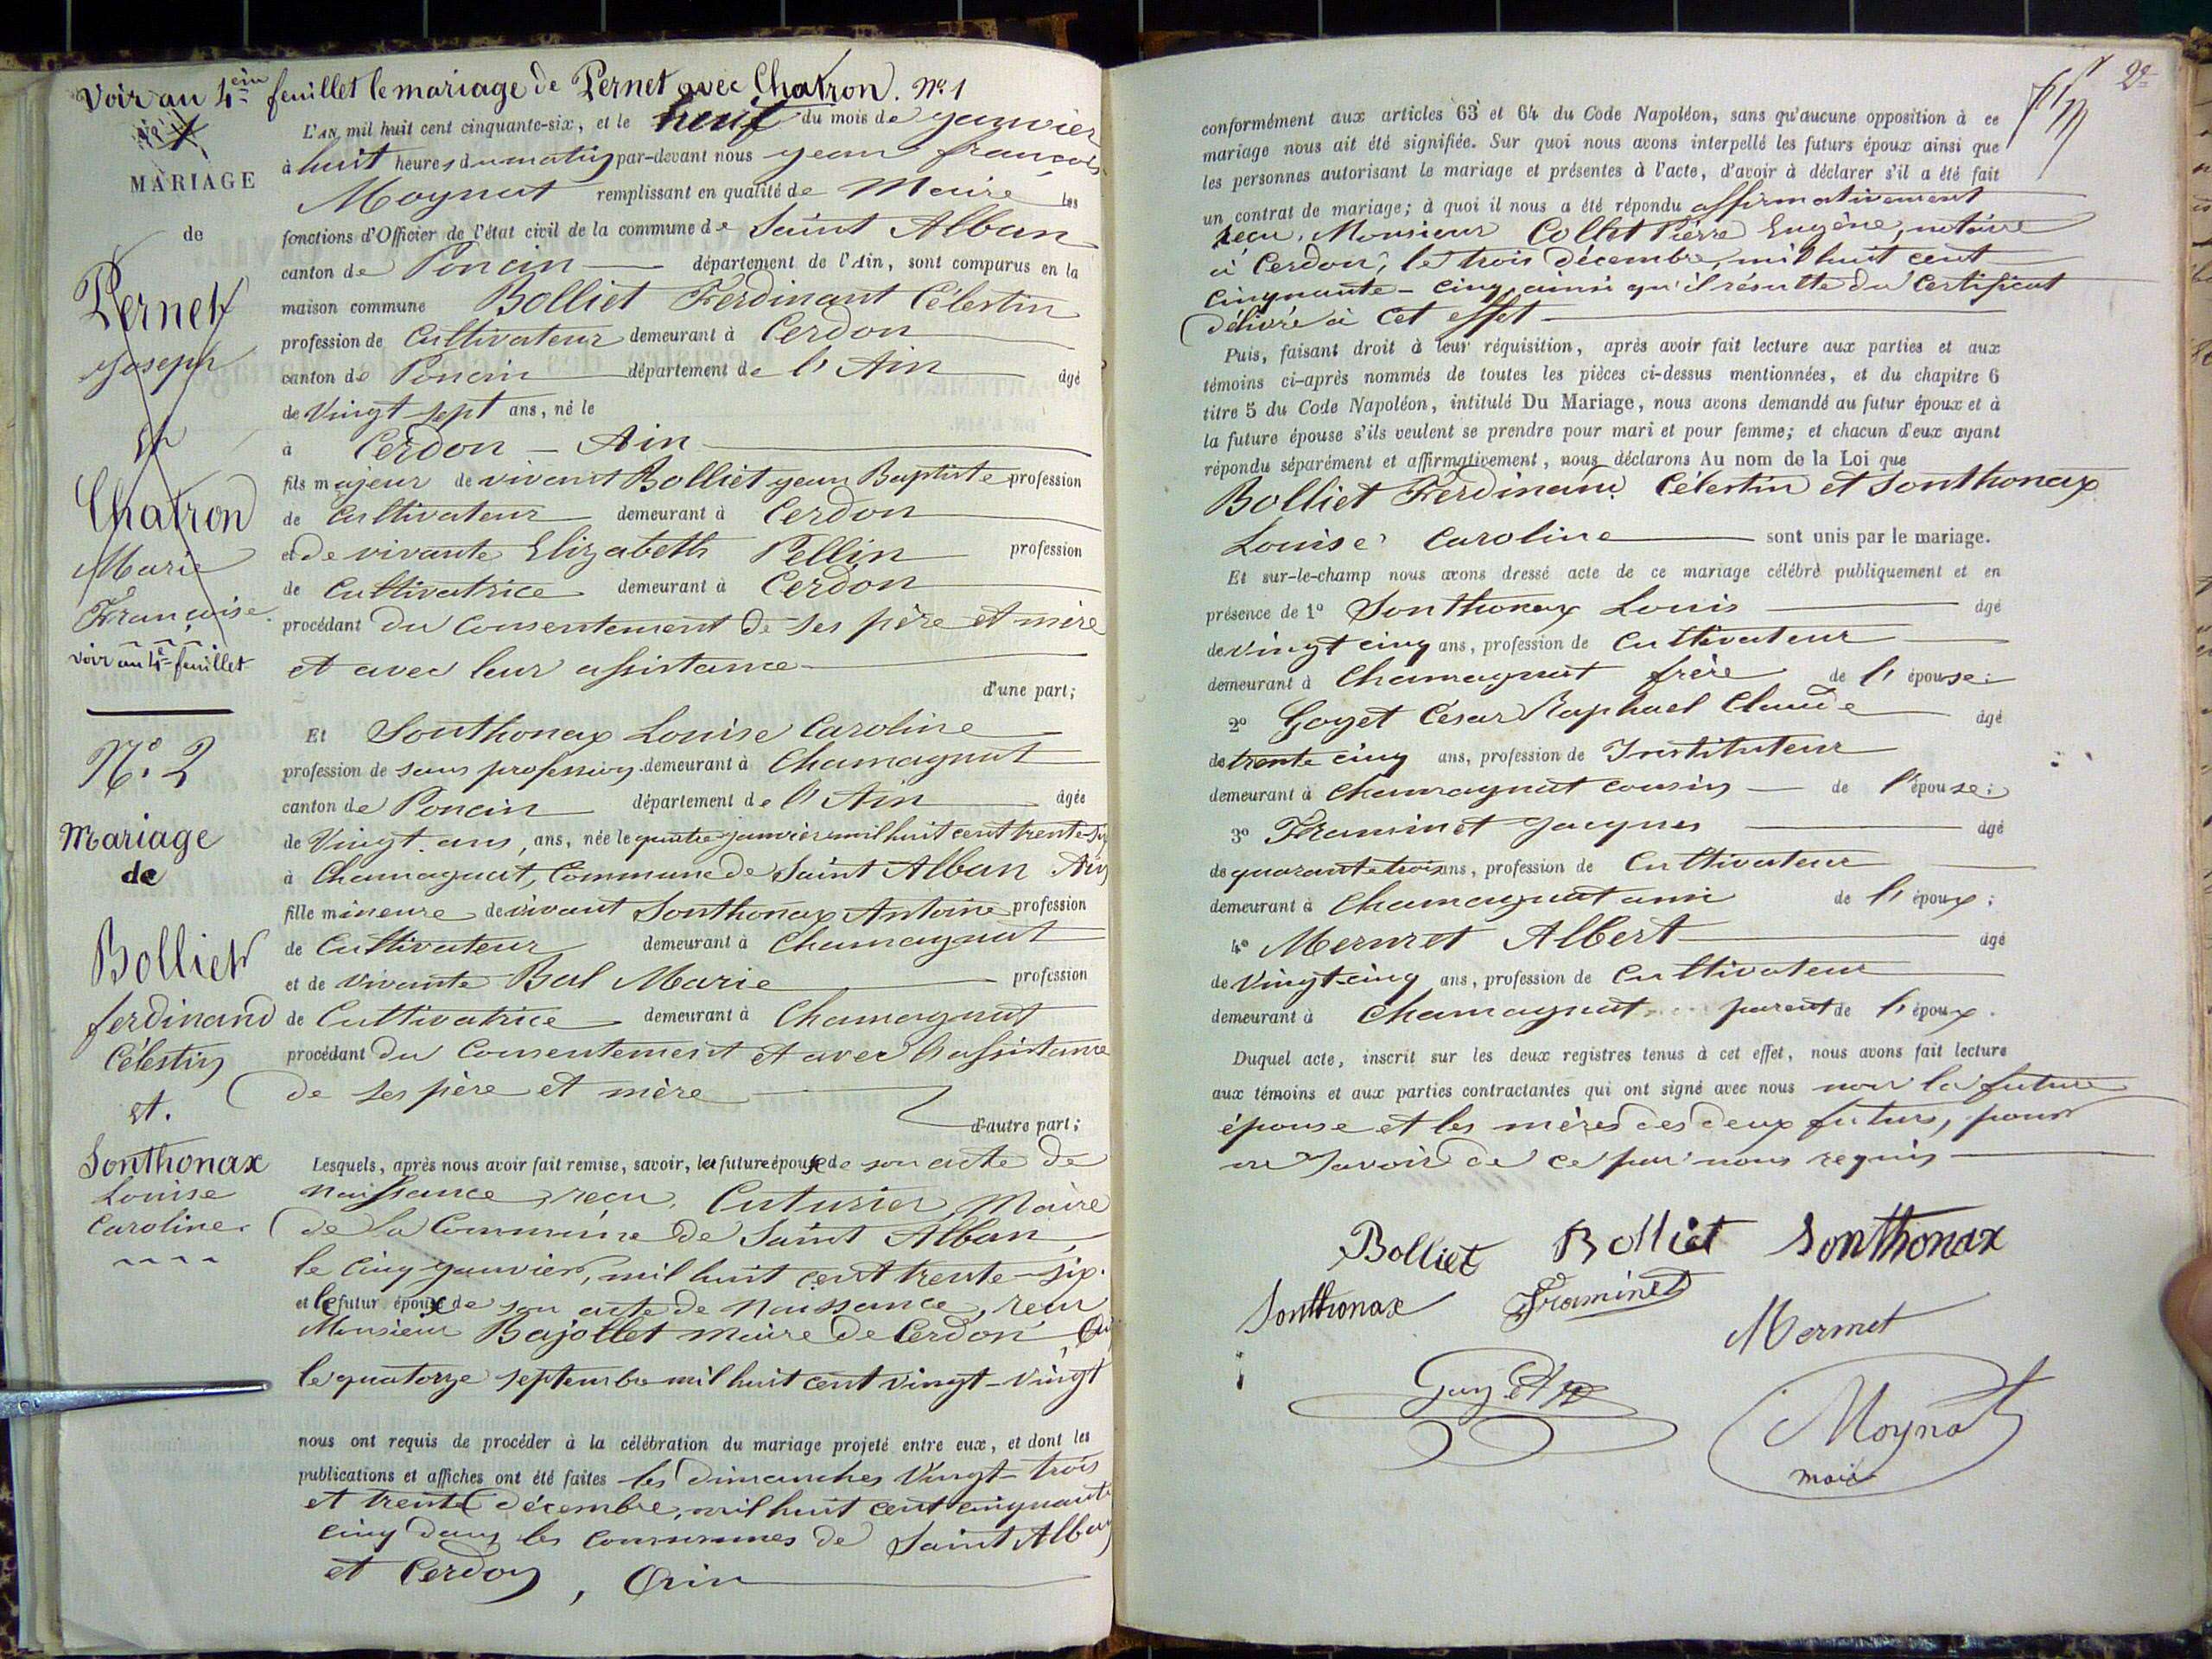 Voir au 4ème feuillet le mariage de Pernet avec Chatron. N° 1
N° 1
MARIAGE
de
Pernet
Joseph
et
Chatron
Marie
Françoise.
voir au 4e feuillet
N°. 2
Mariage
de
Bolliet
ferdinand
Célestin
et.
Sonthonax
Louise
Caroline.
L'AN mil huit cent cinquante-six, et le neuf du mois de janvier
à huit heures du matin par-devant nous jean françois
Moynat remplissant en qualité de Maire les
fonctions d'Officier de l'état civil de la commune de Saint Alban
canton de Poncin département de l'Ain, sont comparus en la
maison commune Bolliet Ferdinant Célestin
profession de Cultivateur demeurant à Cerdon
canton de Poncin département de l'Ain âgé
de Vingt sept ans, né le
à Cerdon - Ain
fils majeur de vivant Bolliet jean Baptiste profession
de Cultivateur demeurant à Cerdon
et de vivante Elizabeth Pellin profession
de Cultivatrice demeurant à Cerdon
procédant du Consentement de ses père et mère
et avec leur assistance
d'une part;
Et Sonthonax Louise Caroline
profession de sans profession demeurant à Chamagnat
canton de Poncin département de l'Ain âgée
de Vingt ans, ans, née le quatre janvier mil huit cent trente-six
à Chamagnat, Commune de Saint Alban Ain
fille mineure de vivant Sonthonax Antoine profession
de Cultivateur demeurant à Chamagnat
et de vivante Bal Marie profession
de Cultivatrice demeurant à Chamagnat
procédant du Consentement et avec l'assistance
de ses père et mère
d'autre part;
Lesquels, après nous avoir fait remise, savoir, la future épouse de son acte de
naissance, reçu, Cuturier, Maire
de la Commune de Saint Alban,
le Cinq janvier, mil huit cent trente-six.
et le futur époux de son acte de naissance, reçu
Monsieur Bajollet maire de Cerdon,
le quatorze septembre mil huit cent vingt-vingt
nous ont requis de procéder à la célébration du mariage projeté entre eux, et dont les
publications et affiches ont été faites les dimanches Vingt-trois
et trente décembre, mil huit cent cinquante
cinq dans les Communes de Saint Alban
et Cerdon, Ain
2e
conformément aux articles 63 et 64 du Code Napoléon, sans qu'aucune opposition à ce
mariage nous ait été signifiée. Sur quoi nous avons interpellé les futurs époux ainsi que
les personnes autorisant le mariage et présentes à l'acte, d'avoir à déclarer s'il a été fait
un contrat de mariage; à quoi il nous a été répondu affirmativement
reçu, Monsieur Collet Pierre Eugène, notaire
à Cerdon, le trois décembre, mil huit cent
cinquante-cinq, ainsi qu'il résulte du Certificat
délivré à cet effet
Puis, faisant droit à leur réquisition, après avoir fait lecture aux parties et aux
témoins ci-après nommés de toutes les pièces ci-dessus mentionnées, et du chapitre 6
titre 5 du Code Napoléon, intitulé Du Mariage, nous avons demandé au futur époux et à
la future épouse s'ils veulent se prendre pour mari et pour femme; et chacun d'eux ayant
répondu séparément et affirmativement, nous déclarons Au nom de la Loi que
Bolliet Ferdinand Célestin et Sonthonax
Louise Caroline sont unis par le mariage.
Et sur-le-champ nous avons dressé acte de ce mariage célébré publiquement et en
présence de 1° Sonthonax Louis âgé
de vingt cinq ans, profession de Cultivateur
demeurant à Chamagnat frère de l'épouse;
2° Goyet César Raphael Claude âgé
de trente cinq ans, profession de Instituteur
demeurant à Chamagnat cousin de l'épouse;
3° Framinet Jacques âgé
de quarante trois ans, profession de Cultivateur
demeurant à Chamagnat ami de l'époux;
4° Mermet Albert âgé
de Vingt-cinq ans, profession de Cultivateur
demeurant à Chamagnat parent de l'époux.
Duquel acte, inscrit sur les deux registres tenus à cet effet, nous avons fait lecture
aux témoins et aux parties contractantes qui ont signé avec nous non la future
épouse et les mères des deux futurs, pour
ne savoir de ce par nous requis
Bolliet Bolliet Sonthonax
Sonthonax Framinet
Mermet
Moynat
maire